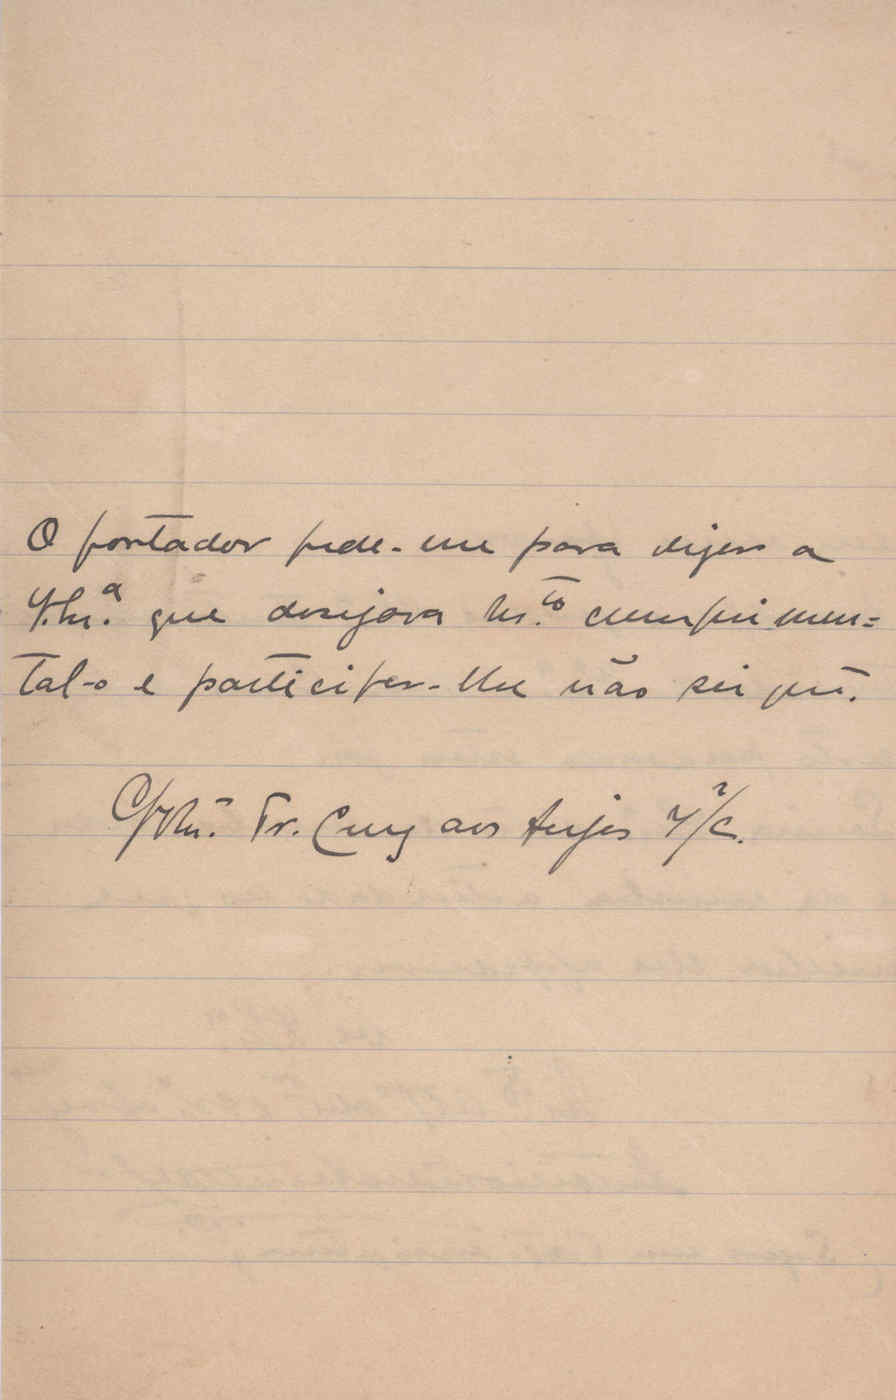 O portador pede-me para dizer a
V. Ex.ª que desejava m.to cumprimen=
tal-o e participar-lhe não sei quê.
Tr. Cruz aos Anjos